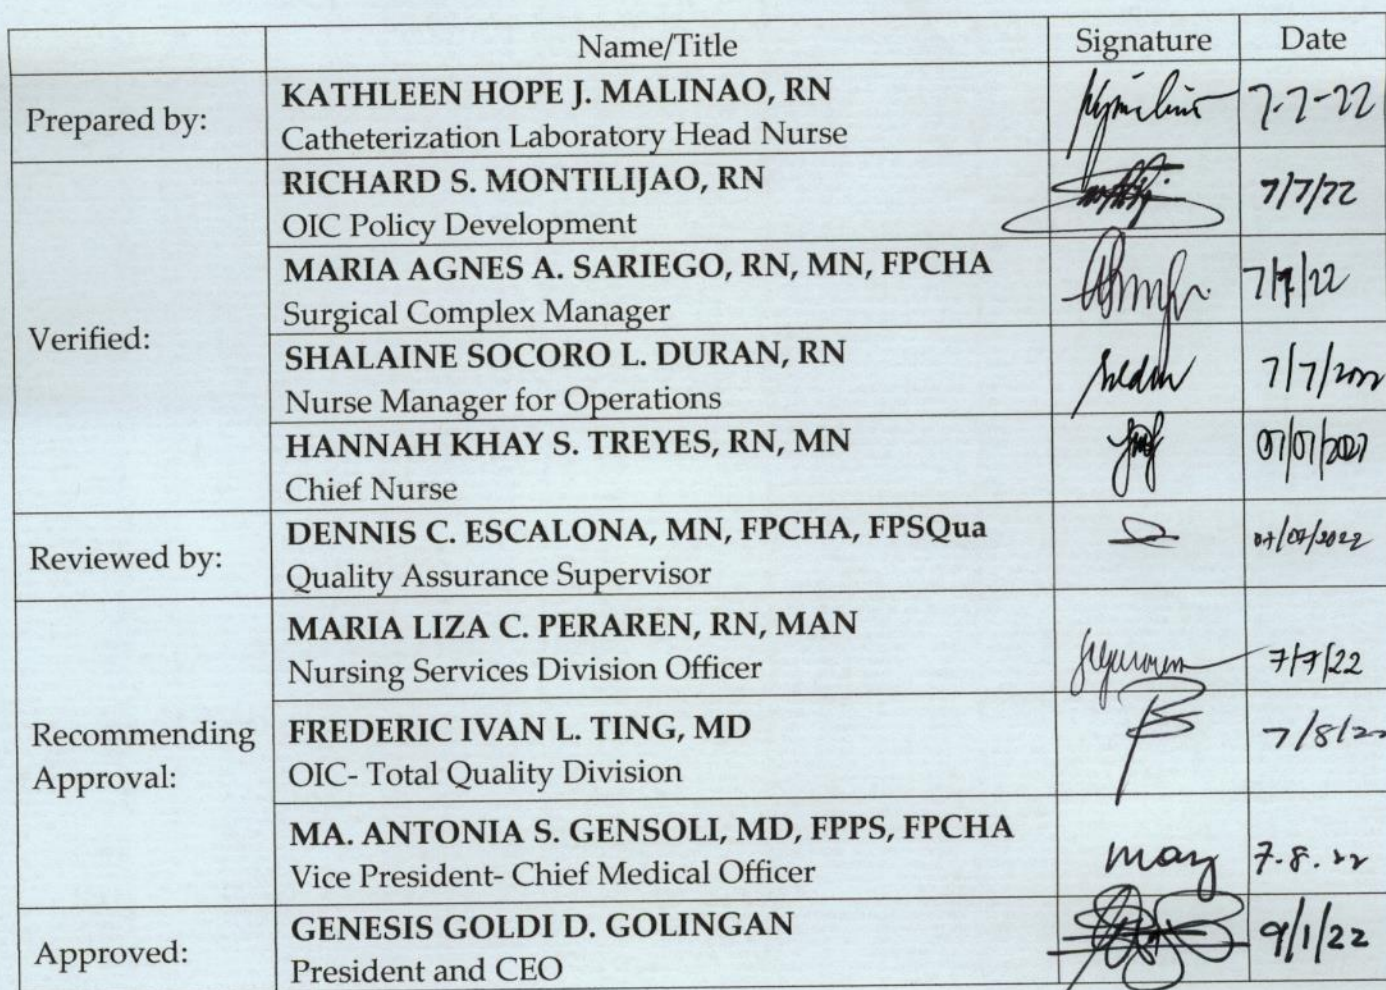 Name/Title Signature Date
Prepared by: KATHLEEN HOPE J. MALINAO, RN 7-7-22
Catheterization Laboratory Head Nurse
Verified: RICHARD S. MONTILIJAO, RN 7/7/22
OIC Policy Development
MARIA AGNES A. SARIEGO, RN, MN, FPCHA 7/7/22
Surgical Complex Manager
SHALAINE SOCORO L. DURAN, RN 7/7/2022
Nurse Manager for Operations
HANNAH KHAY S. TREYES, RN, MN 07/07/2022
Chief Nurse
Reviewed by: DENNIS C. ESCALONA, MN, FPCHA, FPSQua 07/07/2022
Quality Assurance Supervisor
Recommending Approval: MARIA LIZA C. PERAREN, RN, MAN 7/7/22
Nursing Services Division Officer
FREDERIC IVAN L. TING, MD 7/8/22
OIC- Total Quality Division
MA. ANTONIA S. GENSOLI, MD, FPPS, FPCHA 7.8.22
Vice President- Chief Medical Officer
Approved: GENESIS GOLDI D. GOLINGAN 9/1/22
President and CEO